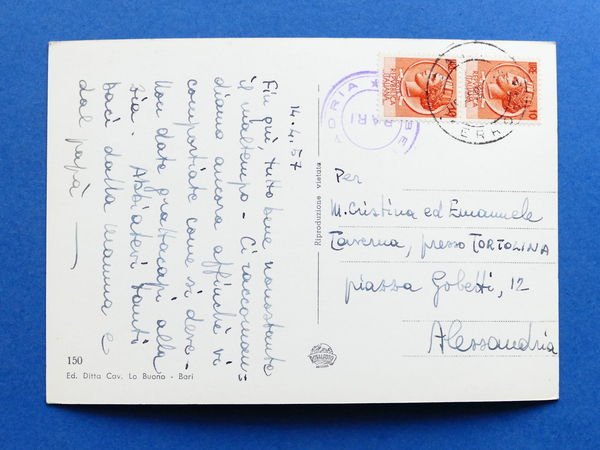 14.4.57
Fin quì, tutto bene nonostante
il maltempo - Ci raccoman=
diamo ancora affinchè vi
comportiate come si deve -
Non date grattacapi alla
zia. Abbiatevi tanti
baci dalla mamma e
dal papà
150
Ed. Ditta Cav. Lo Buono - Bari
Riproduzione vietata
BARI
Per
M. Cristina ed Emanuele
Taverna, presso TORTOLINA
piazza Gobetti, 12
Alessandria